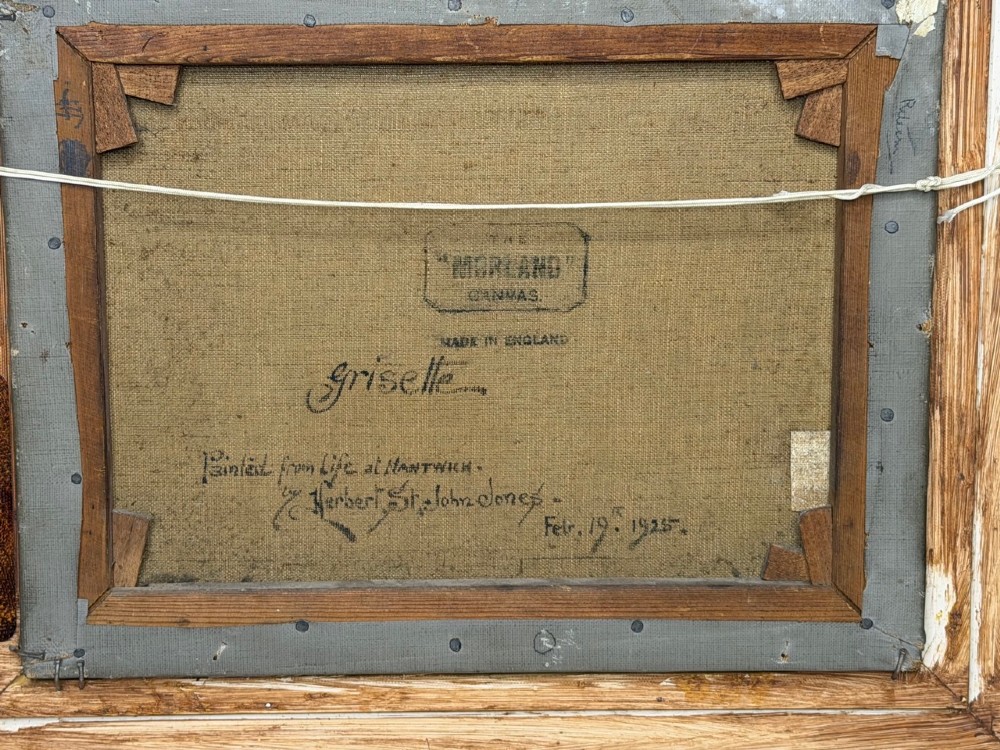 THE
"MORLAND"
CANVAS.
MADE IN ENGLAND
Grisette
Painted from Life at NANTWICH.
by Herbert St. John Jones.
Febr. 19th. 1925.